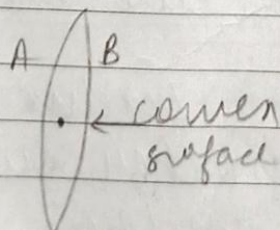 A B
← convex
surface